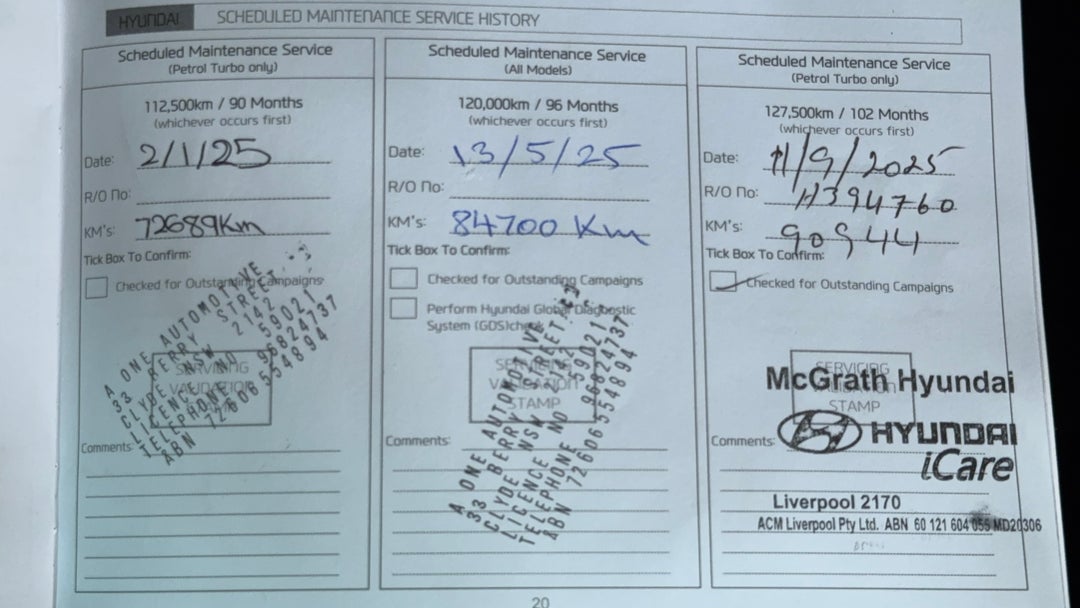 HYUNDAI SCHEDULED MAINTENANCE SERVICE HISTORY
Scheduled Maintenance Service
(Petrol Turbo only)
112,500km / 90 Months
(whichever occurs first)
Date: 2/1/25
R/O No:
KM's: 72689Km
Tick Box To Confirm:
Checked for Outstanding Campaigns
A ONE AUTOMOTIVE
33 BERRY STREET
CLYDE NSW 2142
LICENCE NO 59021
TELEPHONE 96824737
ABN 72606554894
SERVICING
VALIDATION
Comments:
Scheduled Maintenance Service
(All Models)
120,000km / 96 Months
(whichever occurs first)
Date: 13/5/25
R/O No:
KM's: 84700 Km
Tick Box To Confirm:
Checked for Outstanding Campaigns
Perform Hyundai Global Diagnostic
System (GDS)check
SERVICING
VALIDATION
STAMP
A ONE AUTOMOTIVE
33 BERRY STREET
CLYDE NSW 2142
LICENCE NO 59021
TELEPHONE 96824737
ABN 72606554894
Comments:
Scheduled Maintenance Service
(Petrol Turbo only)
127,500km / 102 Months
(whichever occurs first)
Date: 11/9/2025
R/O No: H394760
KM's: 90944
Tick Box To Confirm:
Checked for Outstanding Campaigns
SERVICING
McGrath Hyundai
STAMP
Comments:
HYUNDAI
iCare
Liverpool 2170
ACM Liverpool Pty Ltd. ABN 60 121 604 055 MD20306
20